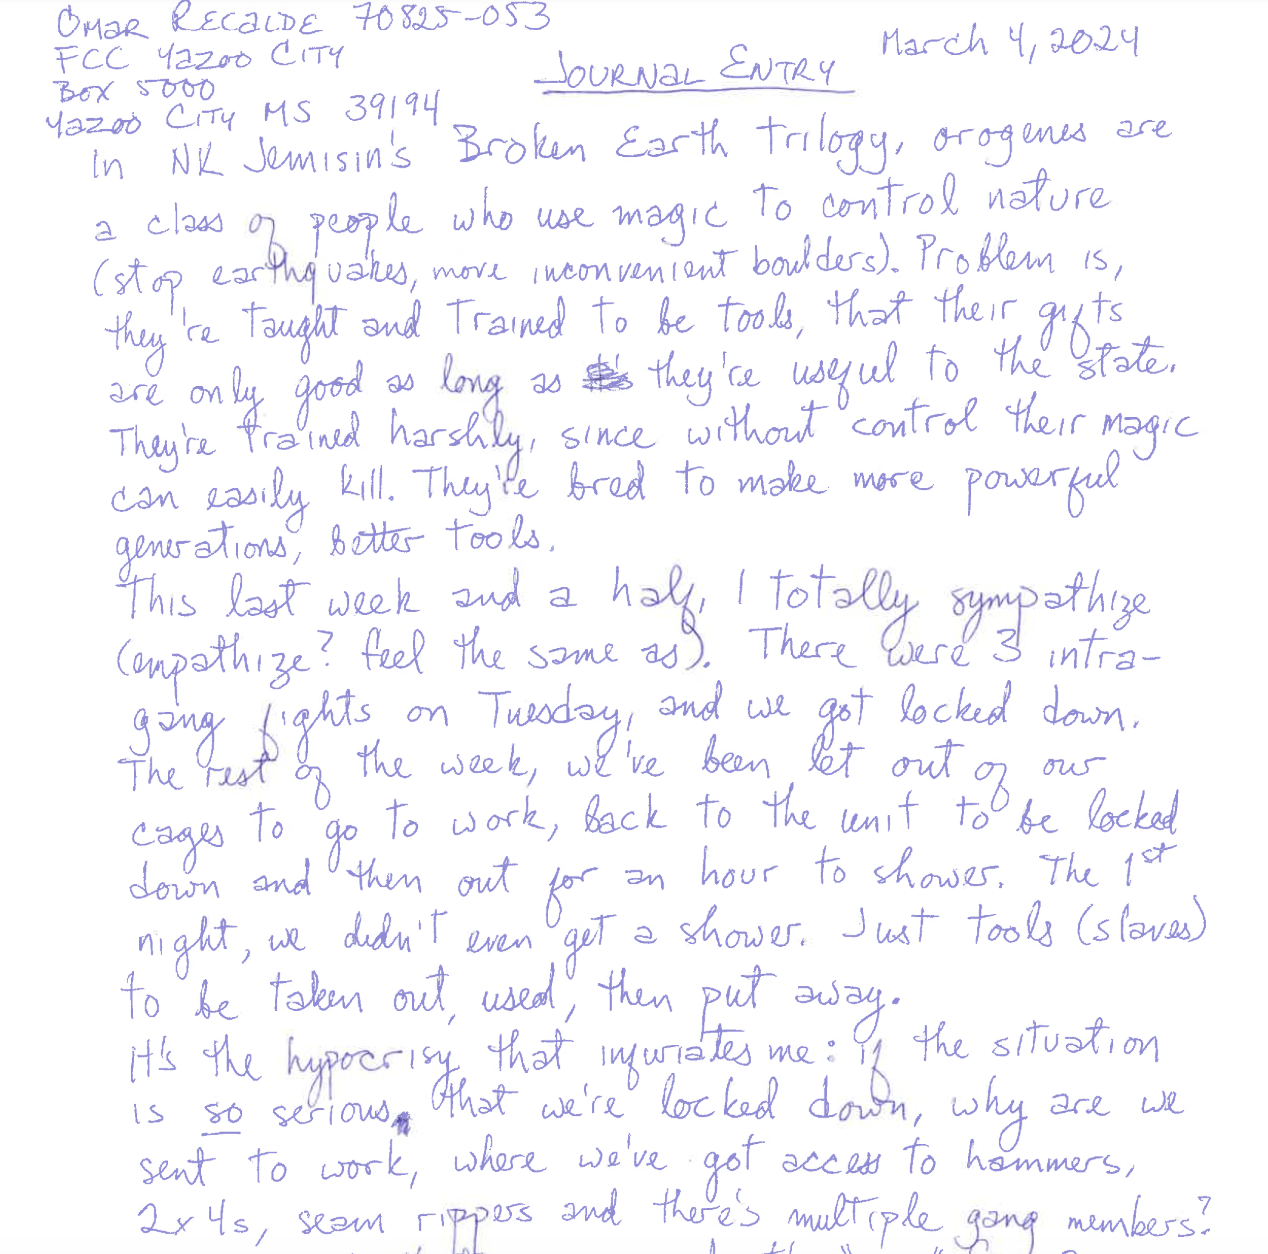 Omar Recalde 70825-053
FCC Yazoo City
Box 5000
Yazoo City MS 39194
March 4, 2024
Journal Entry
In NK Jemisin's Broken Earth trilogy, orogenes are
a class of people who use magic to control nature
(stop earthquakes, move inconvenient boulders). Problem is,
they're taught and trained to be tools, that their gifts
are only good as long as they're useful to the state.
They're trained harshly, since without control their magic
can easily kill. They're bred to make more powerful
generations, better tools.
This last week and a half, I totally sympathize
(empathize? feel the same as). There were 3 intra-
gang fights on Tuesday, and we got locked down.
The rest of the week, we've been let out of our
cages to go to work, back to the unit to be locked
down and then out for an hour to shower. The 1st
night, we didn't even get a shower. Just tools (slaves)
to be taken out, used, then put away.
It's the hypocrisy that infuriates me: if the situation
is so serious that we're locked down, why are we
sent to work, where we've got access to hammers,
2x4s, seam rippers and there's multiple gang members?